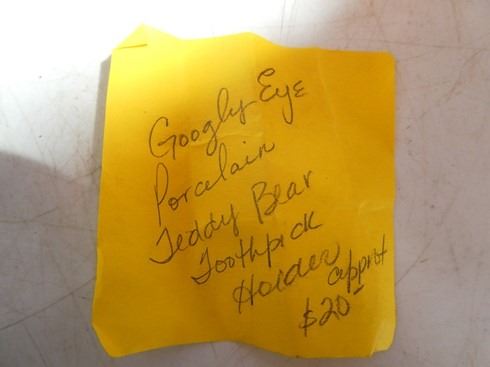 Googly Eye
Porcelain
Teddy Bear
Toothpick
Holder
apprx
$20-